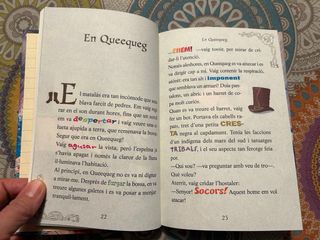 En Queequeg
El matalàs era tan incòmode que sem-
blava farcit de pedres. Em vaig
en el son durant hores, fins que un soroll
em va despertar i vaig veure una
llum sota la porta. Algú va entrar a les
ajuda a terra, que ranera la banca
Segur que era en Queequeg!
Vaig agusar la vista, però l'espelma ja
s'havia apagat i només la claror de la lluna
il·luminava l'habitació.
Al principi, en Queequeg no es va ni dignar
a mirar-me. Després de furgar la bossa, en va
treure algunes galeries i es va posar a menjar
tranquil·lament.
22
En Queequeg
—EHEM! —vaig tossir, per mirar de cri-
dar-li l'atenció.
Només aleshores, en Queequeg es va aixecar i es
va dirigir cap a mi. Vaig contenir la respiració,
aterrit: era tan alt i imponent
que semblava un armari! Duia pan-
talons, un abric i un barret de co-
pa molt curiós.
Quan es va treure el barret, vaig
fer un bot. Portava els cabells
rapats, tret d'una petita CRES-
TA negra al capdamunt. Tenia les faccions
d'un indígena dels mars del sud i tatuatges
TRIBALS, i el seu aspecte tan ferotge feia
por.
—Qui sou? —va preguntar amb veu de tro—.
Què voleu?
Aterrit, vaig cridar l'hostaler:
—Senyor! Socors! Aquest home em vol
atacar!
23